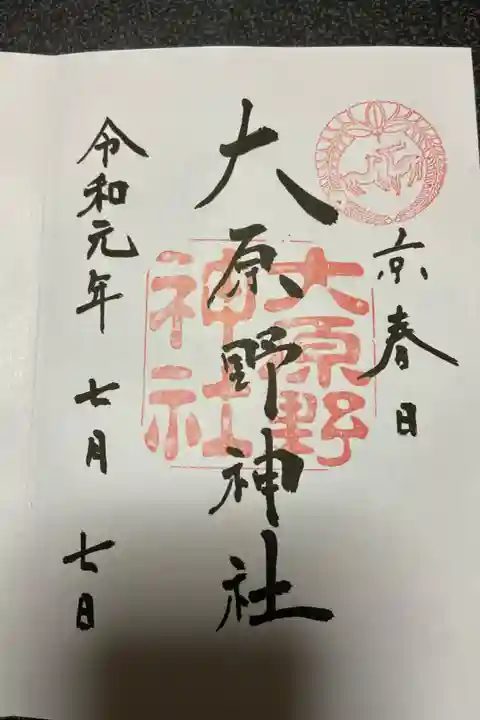 京春日
大原野神社
大原野
神社
令和元年 七月 七日